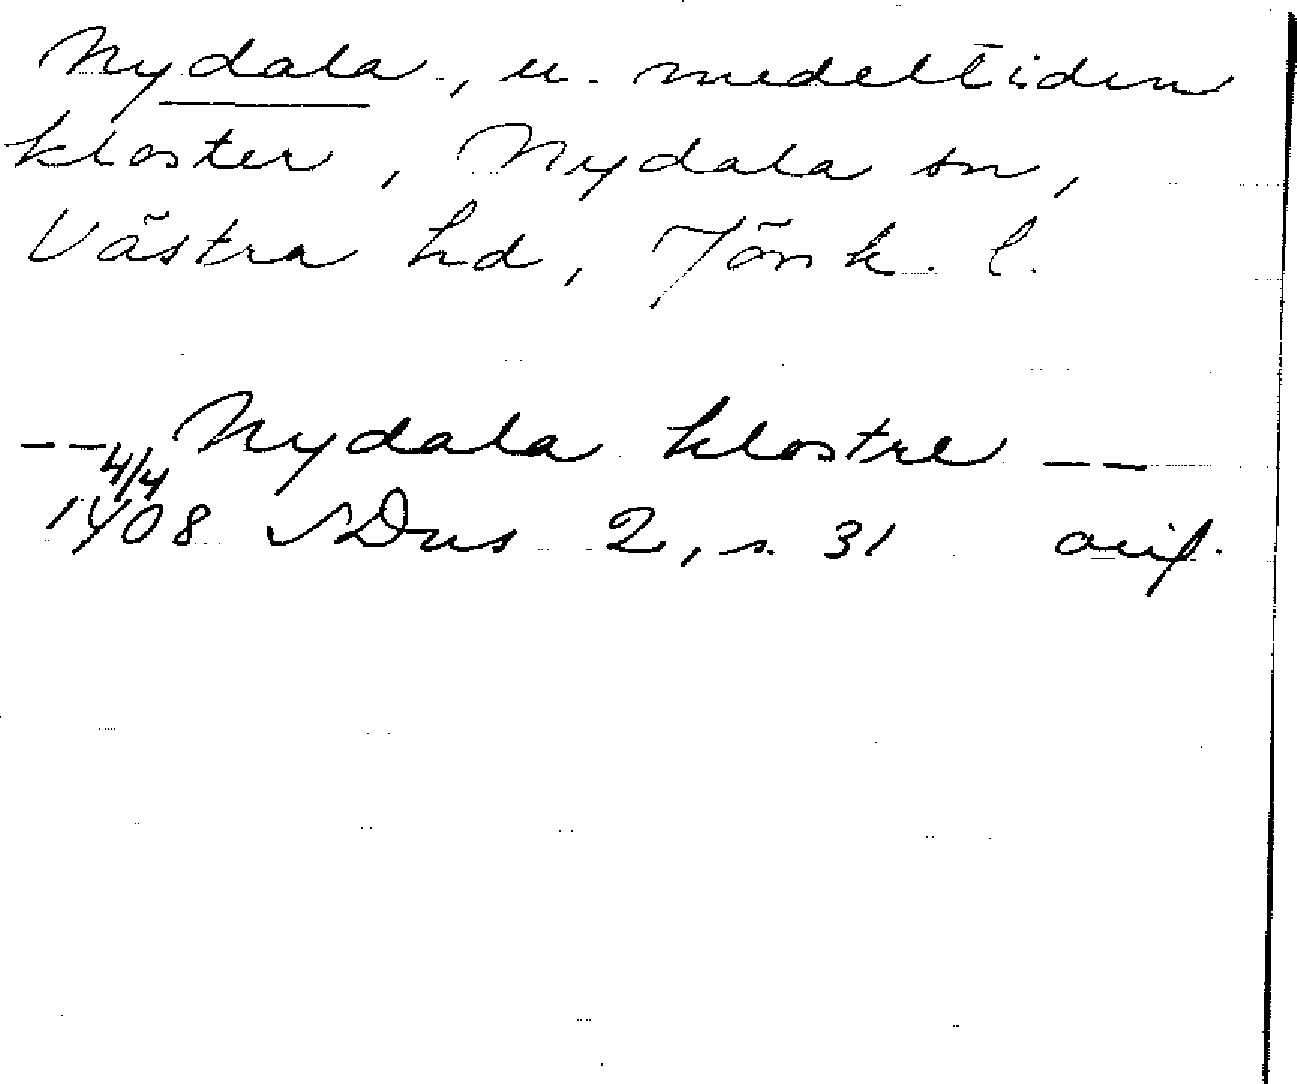 Nydala, u. medeltiden
kloster, Nydala sn,
Västra hd, Jönk. l.
-- Nydala klostre --
4/4
1408 SDns 2, s. 31 avif.